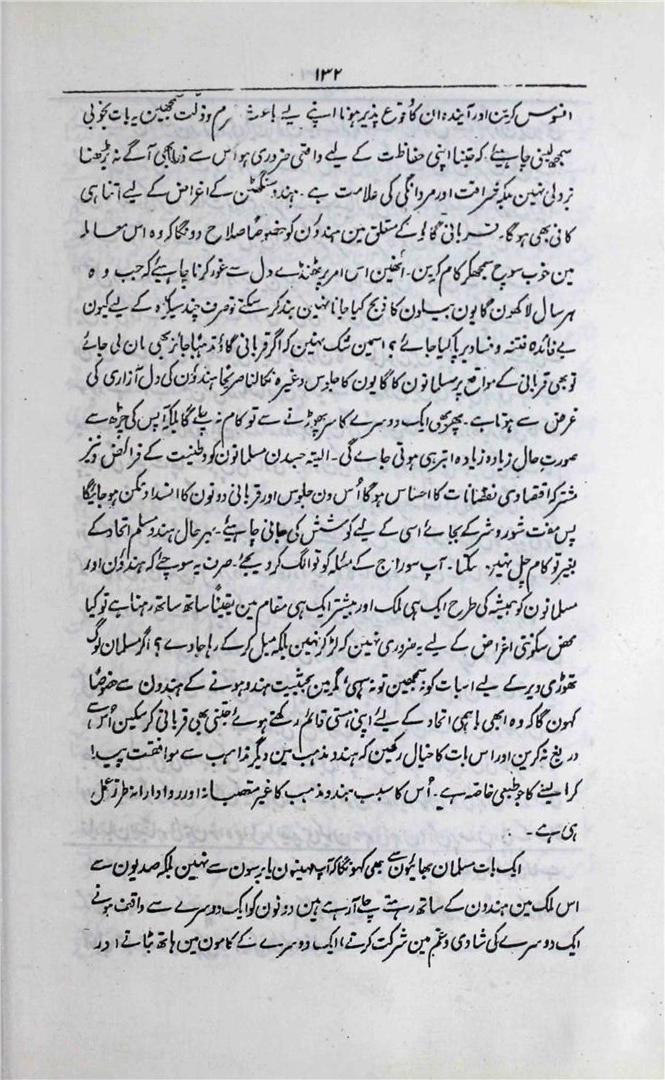 ۱۳۲
افسوس کرین اور آیندہ ان کا وقوع پذیر ہونا اپنے لیے باعث شرم و ذلت سمجھین۔ یہ بات بخوبی
سمجھ لینی چاہیئے کہ جتنا اپنی حفاظت کے لیے واقعی ضروری ہو اس سے ذرا بھی آگے نہ بڑھنا
بزدلی نہین بلکہ شرافت اور مردانگی کی علامت ہے۔ ہندو سنگھٹن کے اغراض کے لیے اتنا ہی
کافی بھی ہوگا۔ قربانی گاؤ کے متعلق مین ہندؤن کو خصوصًا صلاح دونگا کہ وہ اس معاملہ
مین خوب سوچ سمجھکر کام کرین۔ انھین اس امر پر ٹھنڈے دل سے غور کرنا چاہیئے کہ جب وہ
ہر سال لاکھون گایون بیلون کا ذبح کیا جانا نہین بند کر سکتے تو صرف چند سیکڑہ کے لیے کیون
بے فائدہ فتنہ و فساد برپا کیا جائے؟ اسمین شک نہین کہ اگر قربانی گاؤ مذہبًا جائز بھی مان لی جائے
تو بھی قربانی کے مواقع پر مسلمانون کا گایون کا جلوس وغیرہ نکالنا صریحًا ہندؤن کی دل آزاری کی
غرض سے ہوتا ہے۔ پھر بھی ایک دوسرے کا سر پھوڑنے سے تو کام نہ چلے گا بلکہ آپس کی چڑھ سے
صورت حال زیادہ زیادہ ابتر ہی ہوتی جاے گی۔ البتہ جسدن مسلمانون کو وطنیت کے فرائض و نیز
مشترکہ اقتصادی نقصانات کا احساس ہوگا اُس دن جلوس اور قربانی دونون کا انسداد ممکن ہو جائیگا
پس مفت شور و شر کے بجائے اسی کے لیے کوشش کی جانی چاہیئے۔ بہر حال ہندو مسلم اتحاد کے
بغیر تو کام چل نہین سکتا۔ آپ سوراج کے مسئلہ کو تو الگ کر دیجئے۔ صرف یہ سوچئے کہ ہندؤن اور
مسلمانون کو ہمیشہ کی طرح ایک ہی ملک اور بیشتر ایک ہی مقام مین یقینًا ساتھ ساتھ رہنا ہے تو کیا
محض سکونتی اغراض کے لیے یہ ضروری نہین کہ لڑ کر نہین بلکہ میل کرکے رہا جاوے؟ اگر مسلمان لوگ
تھوڑی دیر کے لیے اسبات کو نہ سمجھین تو نہ سہی، مگر مین بحیثیت ہندو ہونے کے ہندون سے خصوصًا
کہون گا کہ وہ ابھی باہمی اتحاد کے لیے اپنی ہستی قائم رکھتے ہوئے جتنی بھی قربانی کر سکین اُس سے
دریغ نہ کرین اور اس بات کا خیال رکھین کہ ہندو مذہب مین دیگر مذاہب سے موافقت پیدا
کرا لینے کا جو طبعی خاصہ ہے۔ اُس کا سبب ہندو مذہب کا غیر متعصبانہ اور روادارانہ طرز عمل
ہی ہے۔
ایک بات مسلمان بھائیون سے بھی کہونگا کہ آپ مہینون یا برسون سے نہین بلکہ صدیون سے
اس ملک مین ہندون کے ساتھ رہتے چلے آرہے ہین دونون کو ایک دوسرے سے واقف ہونے
ایک دوسرے کی شادی و غم مین شرکت کرتے، ایک دوسرے کے کامون مین ہاتھ بٹاتے اور